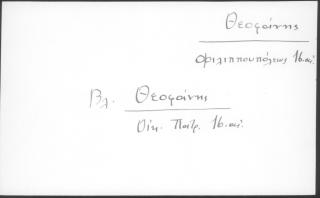 Θεοφάνης
Φιλιππουπόλεως 16. αἰ.
Βλ. Θεοφάνης
Οἰκ. Πατρ. 16. αἰ.